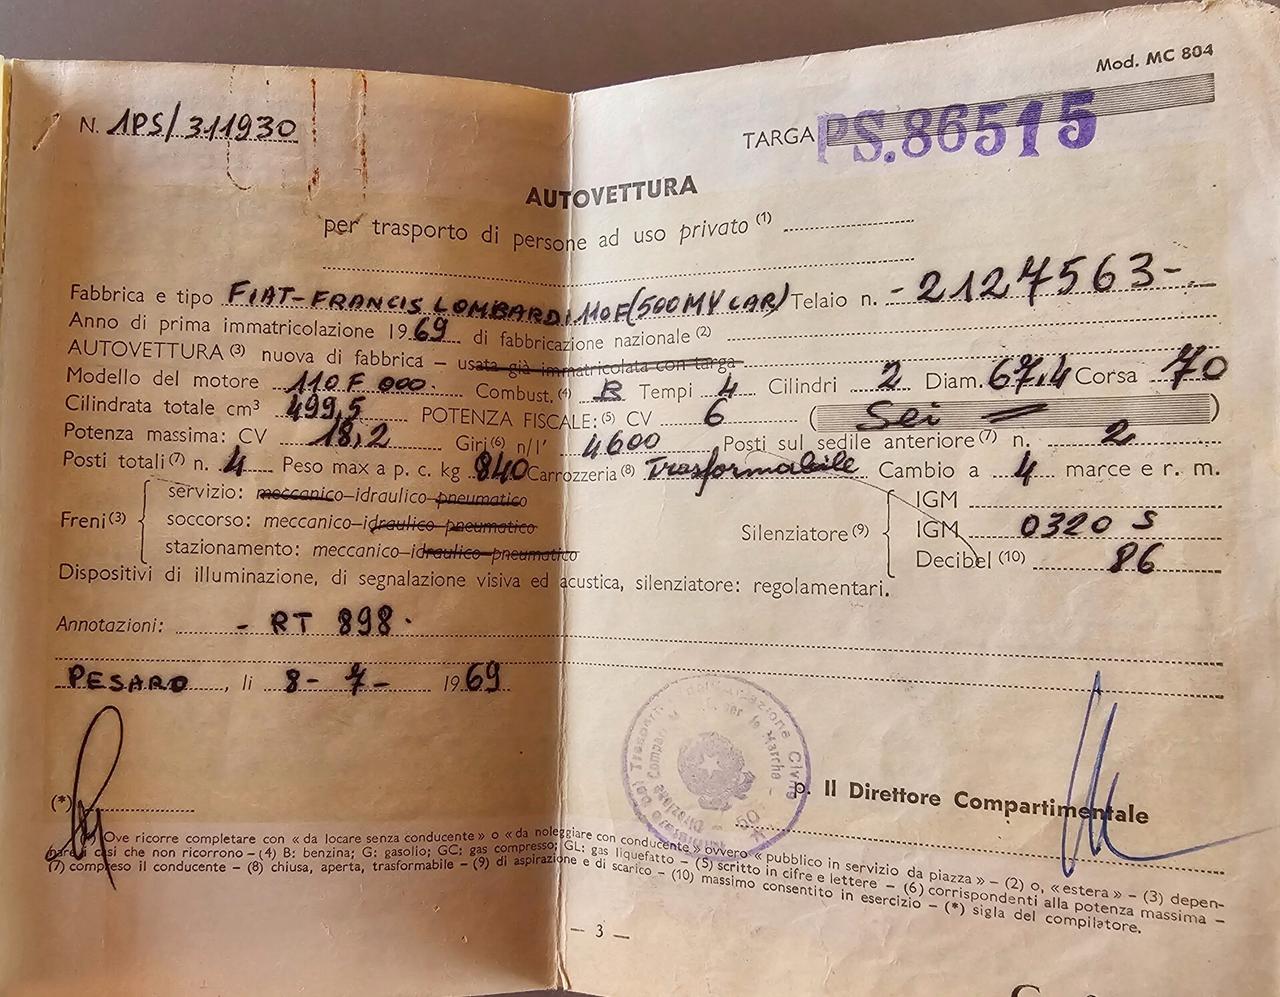 Mod. MC 804
N. 1PS/311930
TARGA PS.86515
AUTOVETTURA
per trasporto di persone ad uso privato (1)
Fabbrica e tipo FIAT-FRANCIS LOMBARDI 110F (500 MY CAR) Telaio n. -2127563-
Anno di prima immatricolazione 1969 di fabbricazione nazionale (2)
AUTOVETTURA (3) nuova di fabbrica – usata già immatricolata con targa
Modello del motore 110 F 000. Combust. (4) B Tempi 4 Cilindri 2 Diam. 67,4 Corsa 70
Cilindrata totale cm³ 499,5 POTENZA FISCALE: (5) CV 6 (Sei =)
Potenza massima: CV 18,2 Giri (6) n/1' 4600 Posti sul sedile anteriore (7) n. 2
Posti totali (7) n. 4 Peso max a p. c. kg 840 Carrozzeria (8) Trasformabile Cambio a 4 marce e r. m.
Freni (3) servizio: meccanico–idraulico–pneumatico
soccorso: meccanico–idraulico–pneumatico
stazionamento: meccanico–idraulico–pneumatico
Silenziatore (9) IGM
IGM 0320 S
Decibel (10) 86
Dispositivi di illuminazione, di segnalazione visiva ed acustica, silenziatore: regolamentari.
Annotazioni: - RT 898.
PESARO, li 8- 7- 1969
p. Il Direttore Compartimentale
(*)
Ove ricorre completare con « da locare senza conducente » o « da noleggiare con conducente » ovvero « pubblico in servizio da piazza » – (2) o, « estera » – (3) depen-
nare i casi che non ricorrono – (4) B: benzina; G: gasolio; GC: gas compresso; GL: gas liquefatto – (5) scritto in cifre e lettere – (6) corrispondenti alla potenza massima –
(7) compreso il conducente – (8) chiusa, aperta, trasformabile – (9) di aspirazione e di scarico – (10) massimo consentito in esercizio – (*) sigla del compilatore.
— 3 —